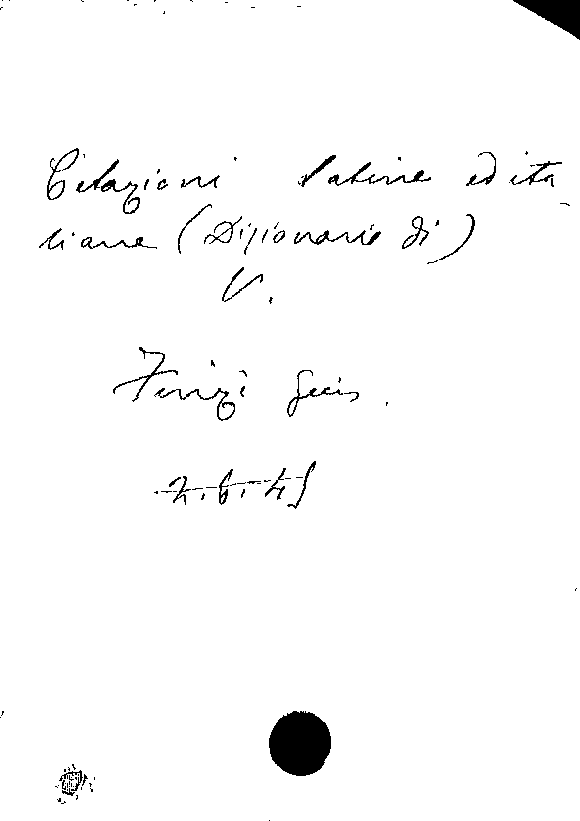 Citazioni latine ed ita-
liane (Dizionario di)
V.
Finzi
2.6.45